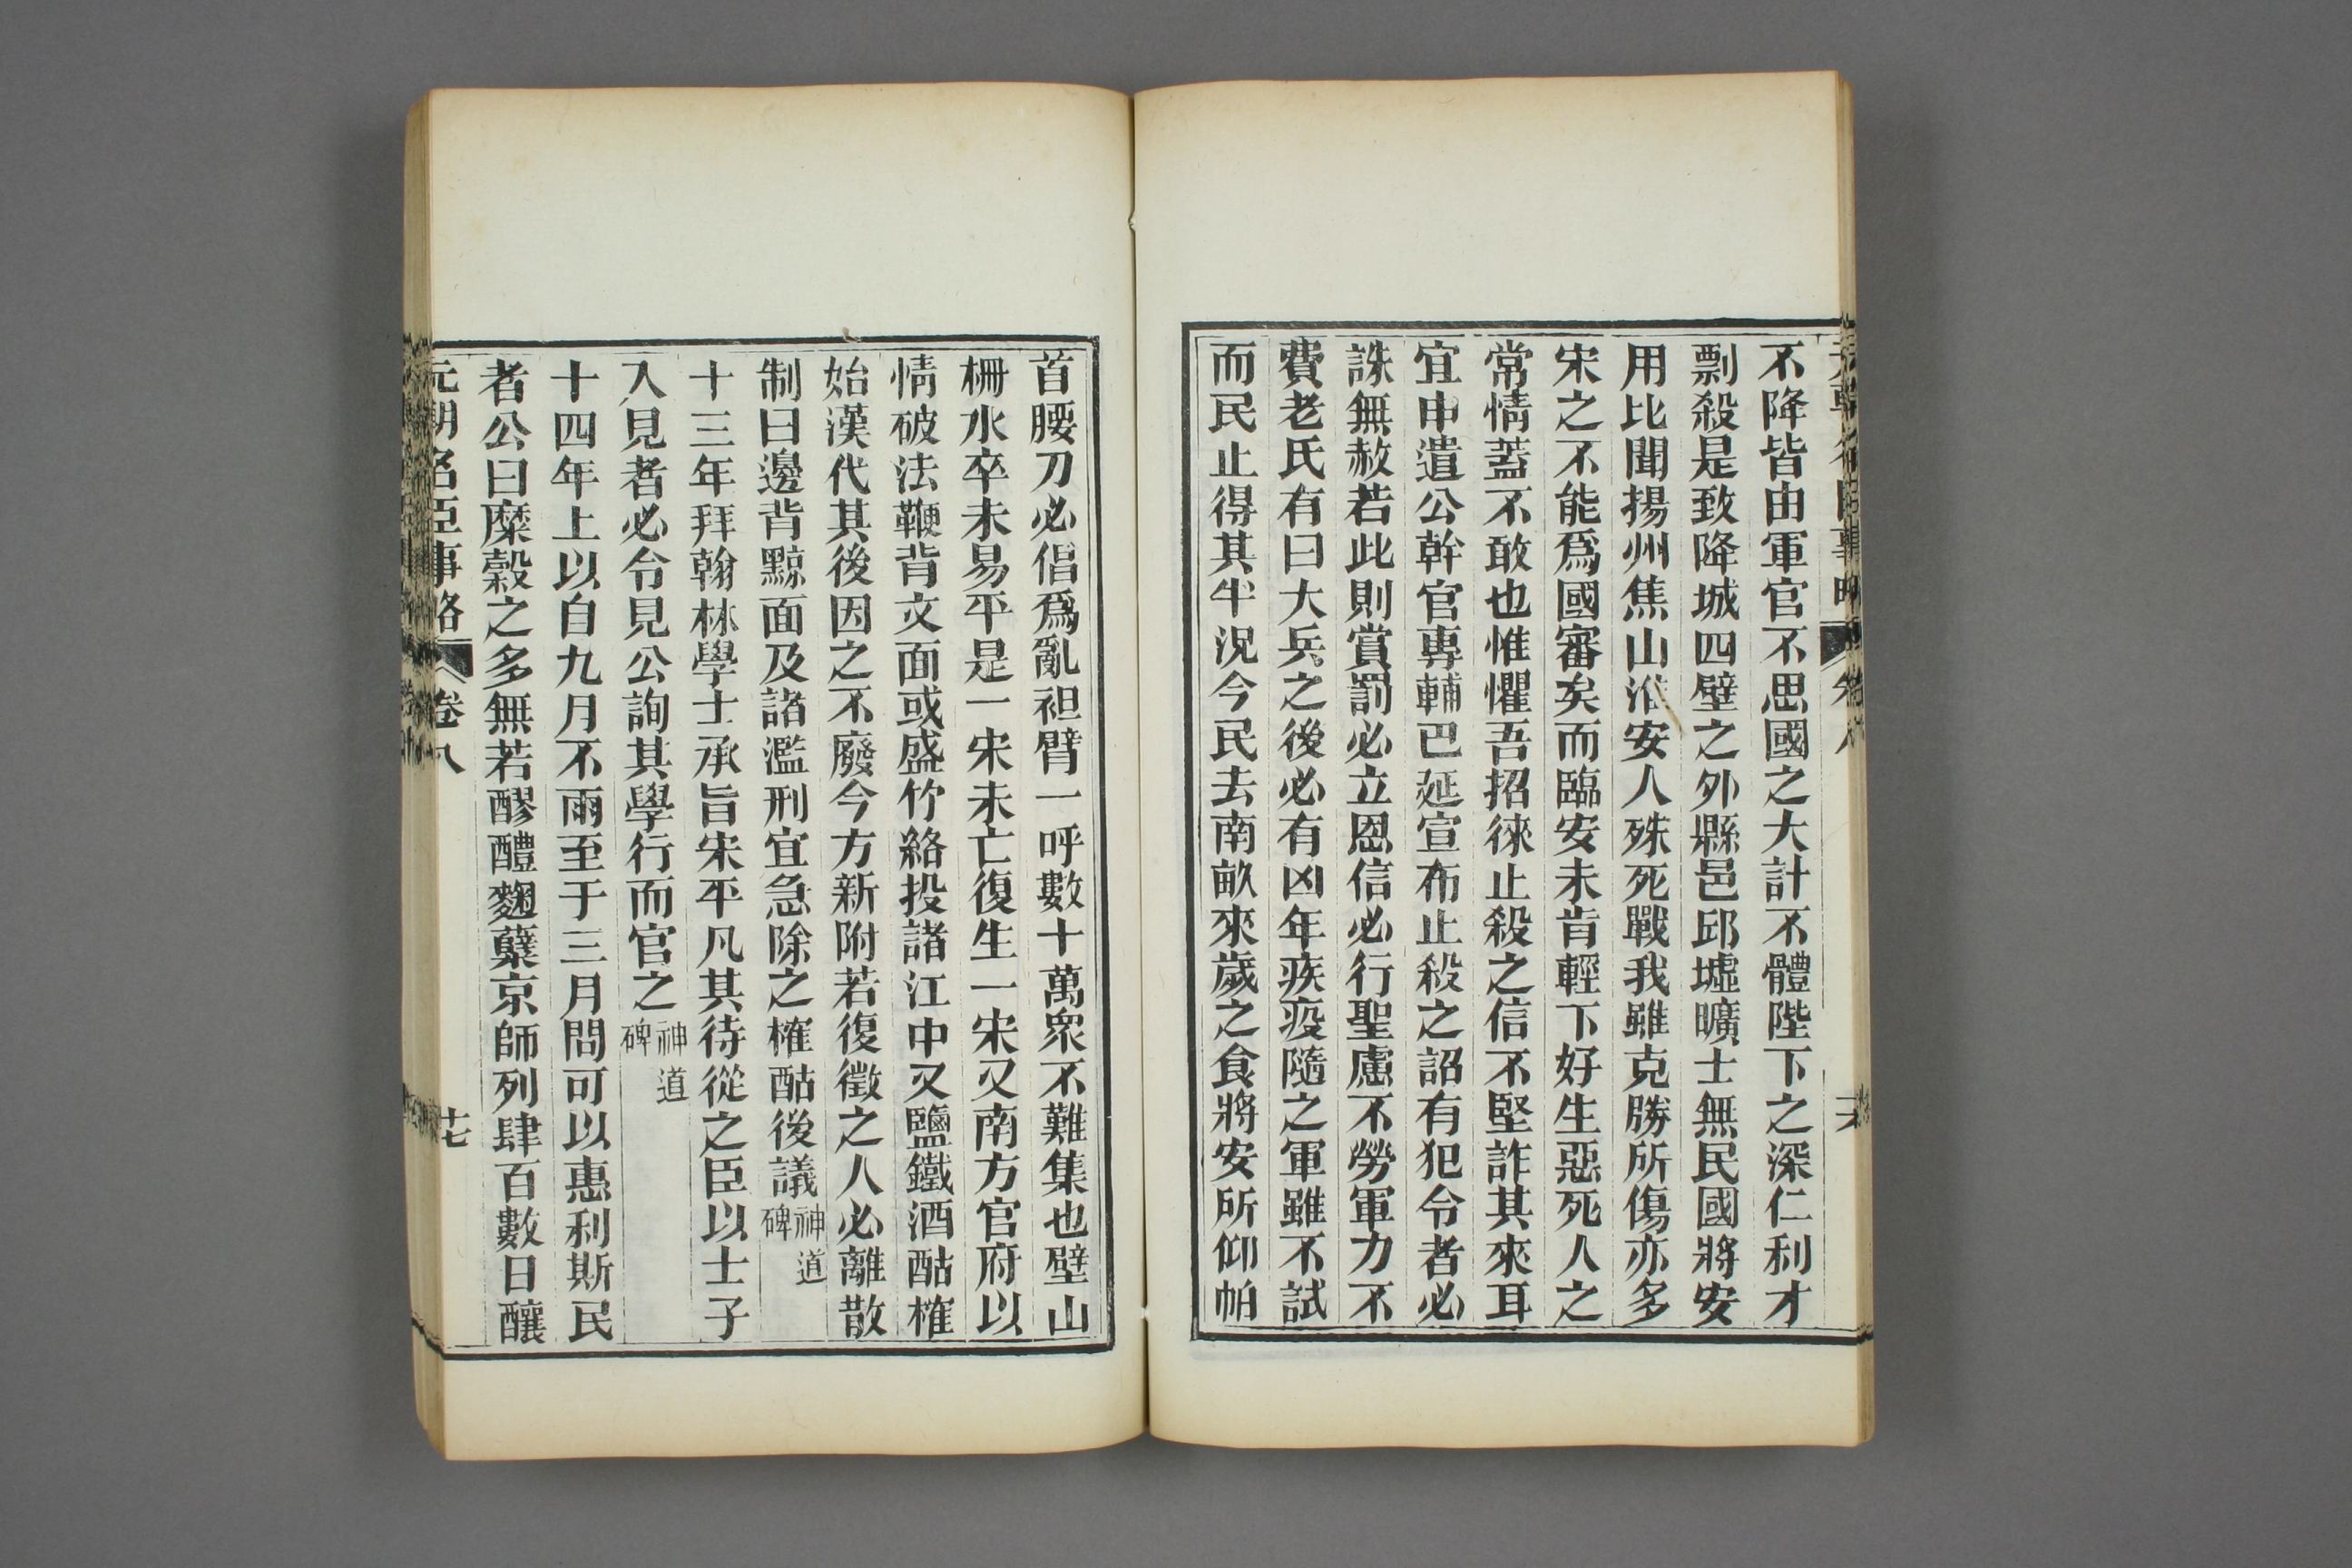 不降皆由軍官不思國之大計不體陛下之深仁利才
剽殺是致降城四壁之外縣邑邱墟曠士無民國將安
用比聞揚州焦山淮安人殊死戰我雖克勝所傷亦多
宋之不能爲國審矣而臨安未肯輕下好生惡死人之
常情蓋不敢也惟懼吾招徠止殺之信不堅詐其來耳
宜申遣公幹官專輔巴延宣布止殺之詔有犯令者必
誅無赦若此則賞罰必立恩信必行聖慮不勞軍力不
費老氏有曰大兵之後必有凶年疾疫隨之軍雖不試
而民止得其半況今民去南畝來歲之食將安所仰帕
首腰刀必倡爲亂袒臂一呼數十萬眾不難集也壁山
柵水卒未易平是一宋未亡復生一宋又南方官府以
情破法鞭背文面或盛竹絡投諸江中又鹽鐵酒酤榷
始漢代其後因之不廢今方新附若復徵之人必離散
制曰邊背黥面及諸濫刑宜急除之榷酤後議神道碑
十三年拜翰林學士承旨宋平凡其待從之臣以士子
入見者必令見公詢其學行而官之神道碑
十四年上以自九月不雨至于三月問可以惠利斯民
者公曰糜穀之多無若醪醴麴糵京師列肆百數日釀
元朝名臣事略 卷八 十七